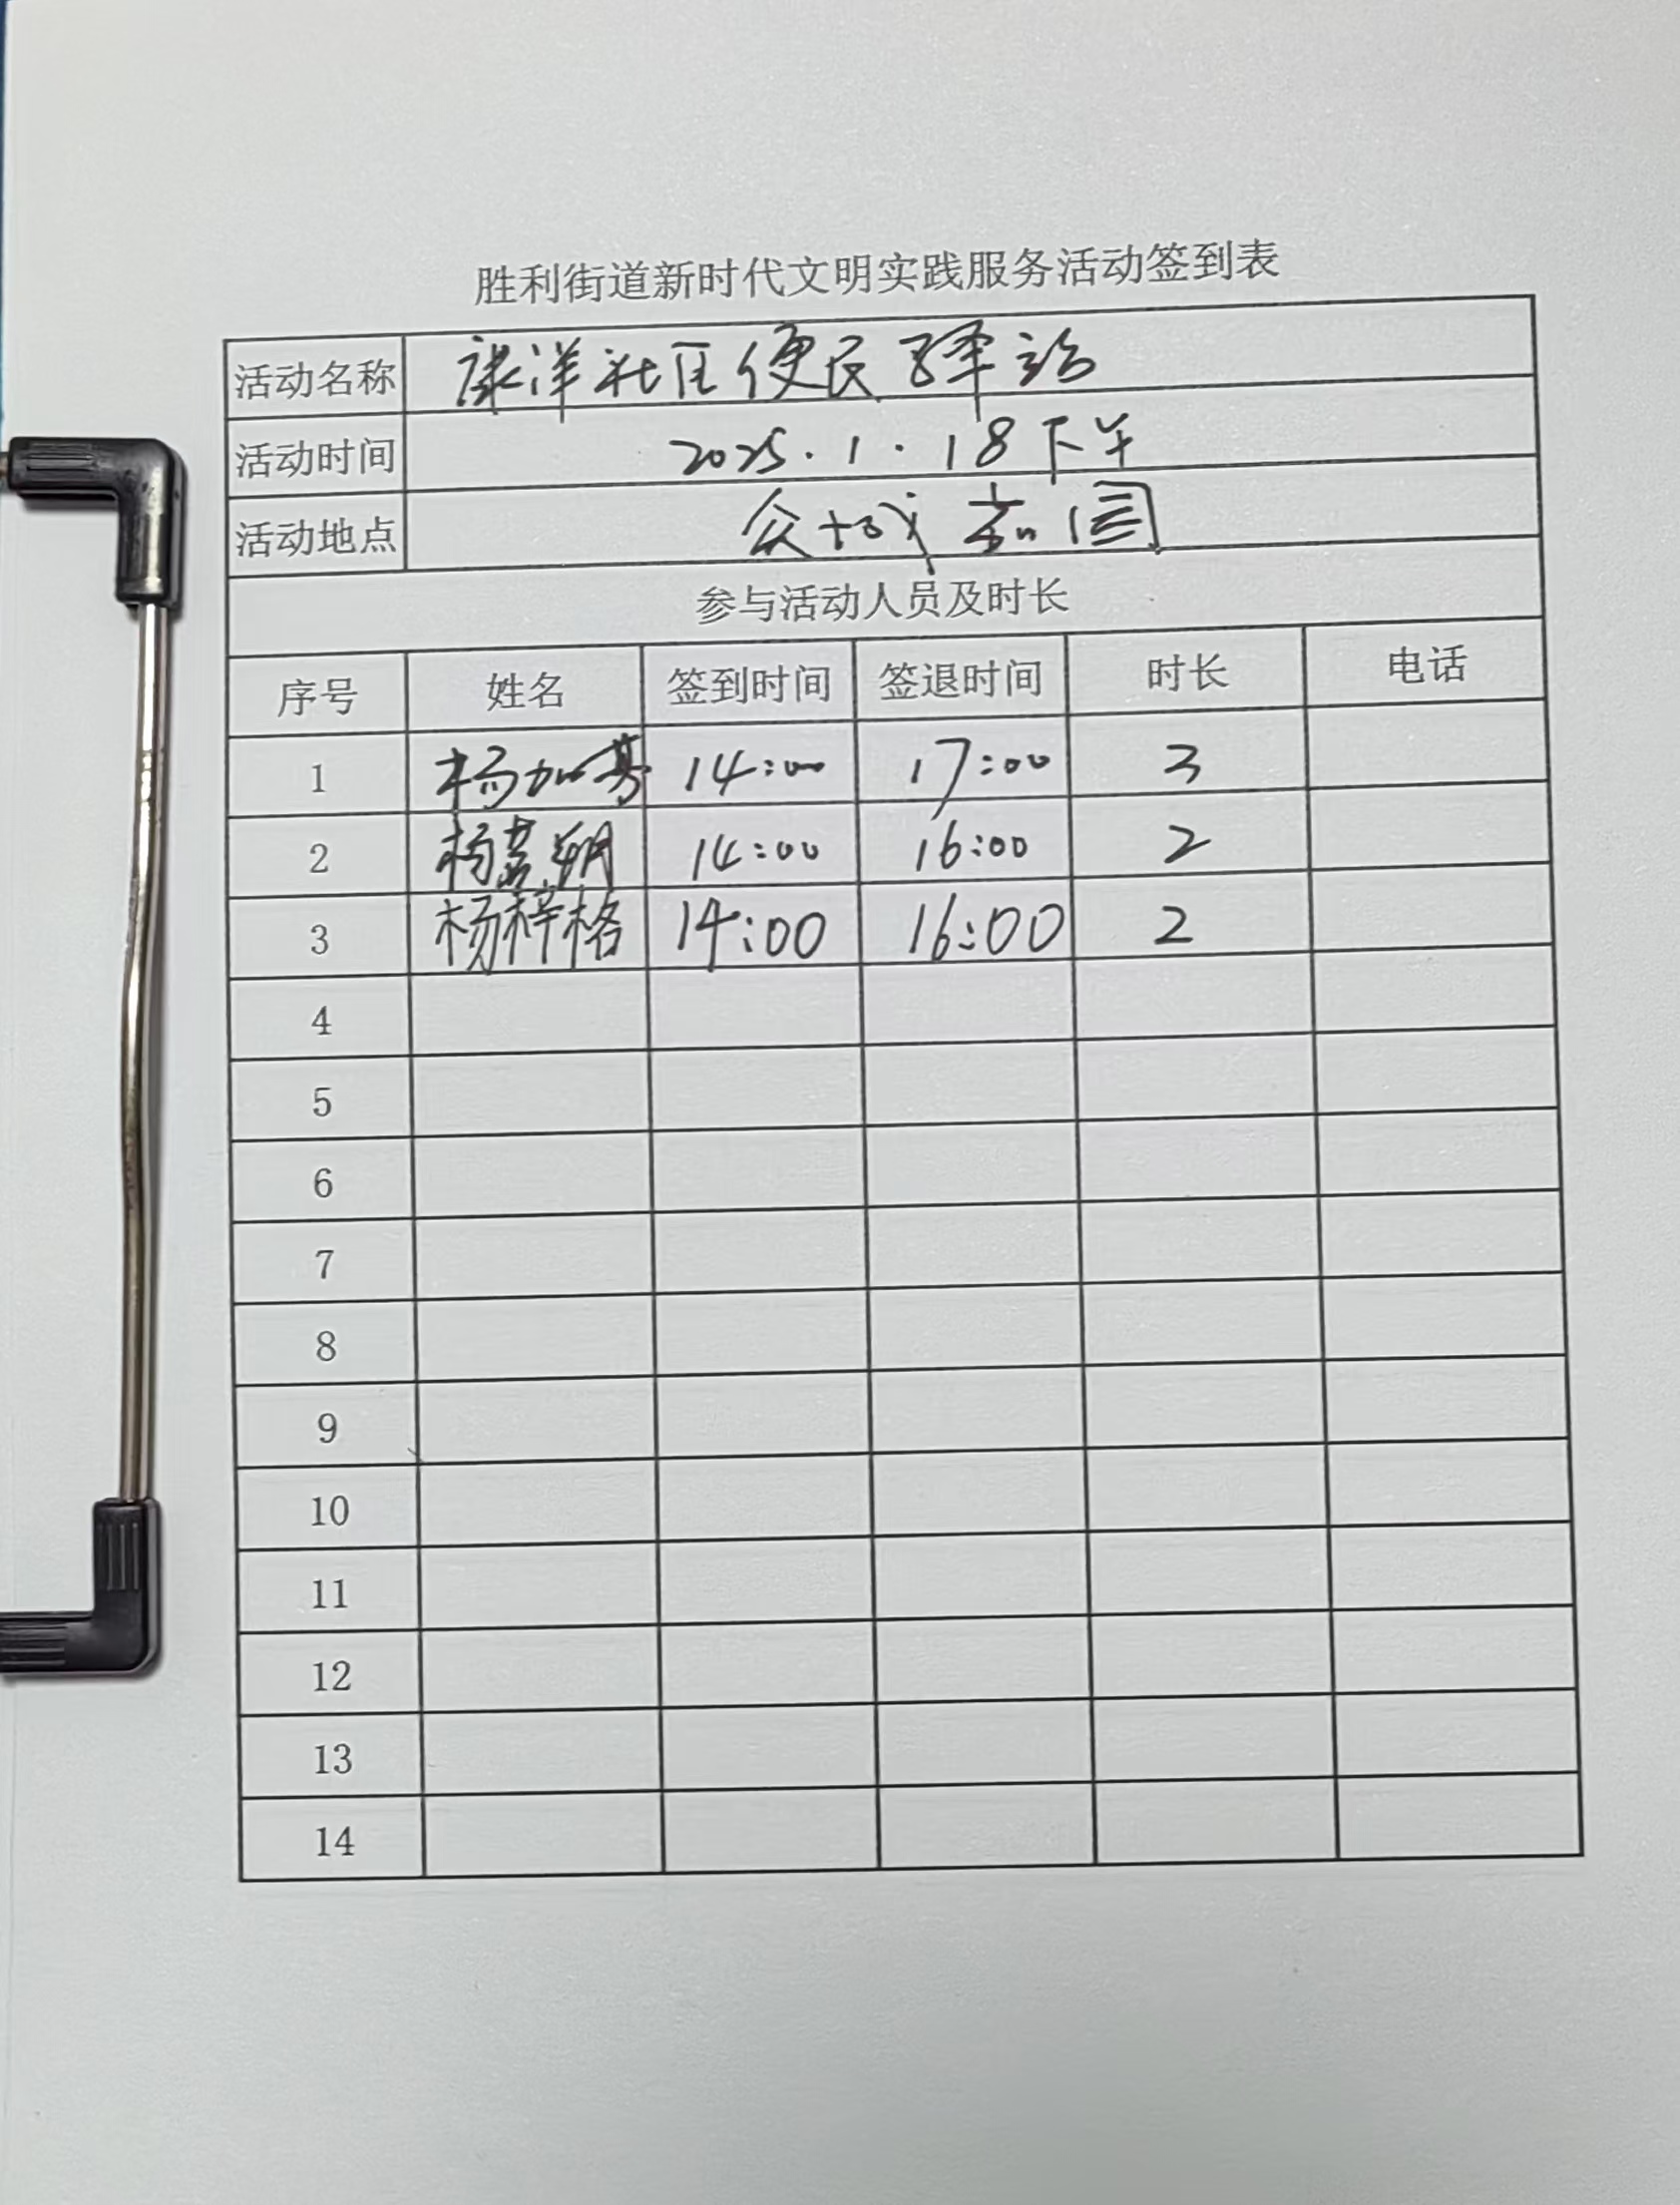 胜利街道新时代文明实践服务活动签到表
活动名称 康洋社区便民驿站
活动时间 2025.1.18下午
活动地点 众城嘉园
参与活动人员及时长
序号 姓名 签到时间 签退时间 时长 电话
1 杨加 14:00 17:00 3
2 杨 朔 14:00 16:00 2
3 杨梓格 14:00 16:00 2
4
5
6
7
8
9
10
11
12
13
14